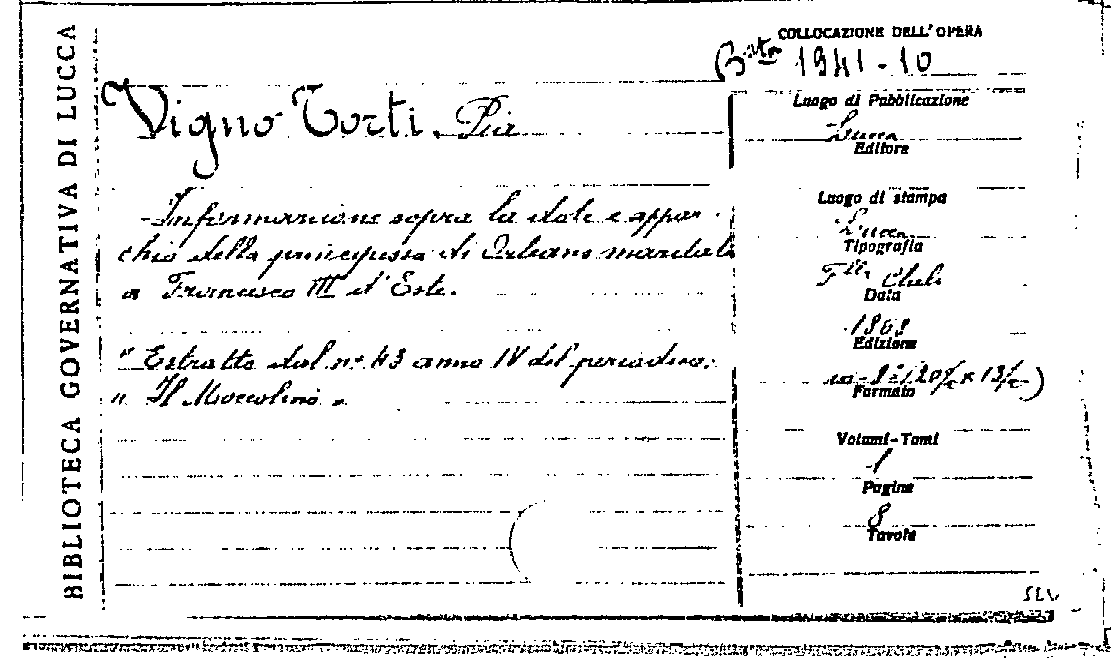 BIBLIOTECA GOVERNATIVA DI LUCCA
COLLOCAZIONE DELL'OPERA
Bta 1941-10
Vigno Torti. Pia
Informazione sopra la dote e appar-
chio della principessa di Orleans maritata
a Francesco III d'Este.
"Estratto dal n. 43 anno IV del periodico:
" Il Moccolino "
Luogo di Pubblicazione
Lucca
Editore
Luogo di stampa
Lucca
Tipografia
Data
1868
Edizione
in-8°
Formato
Volumi-Tomi
1
Pagine
8
Tavole